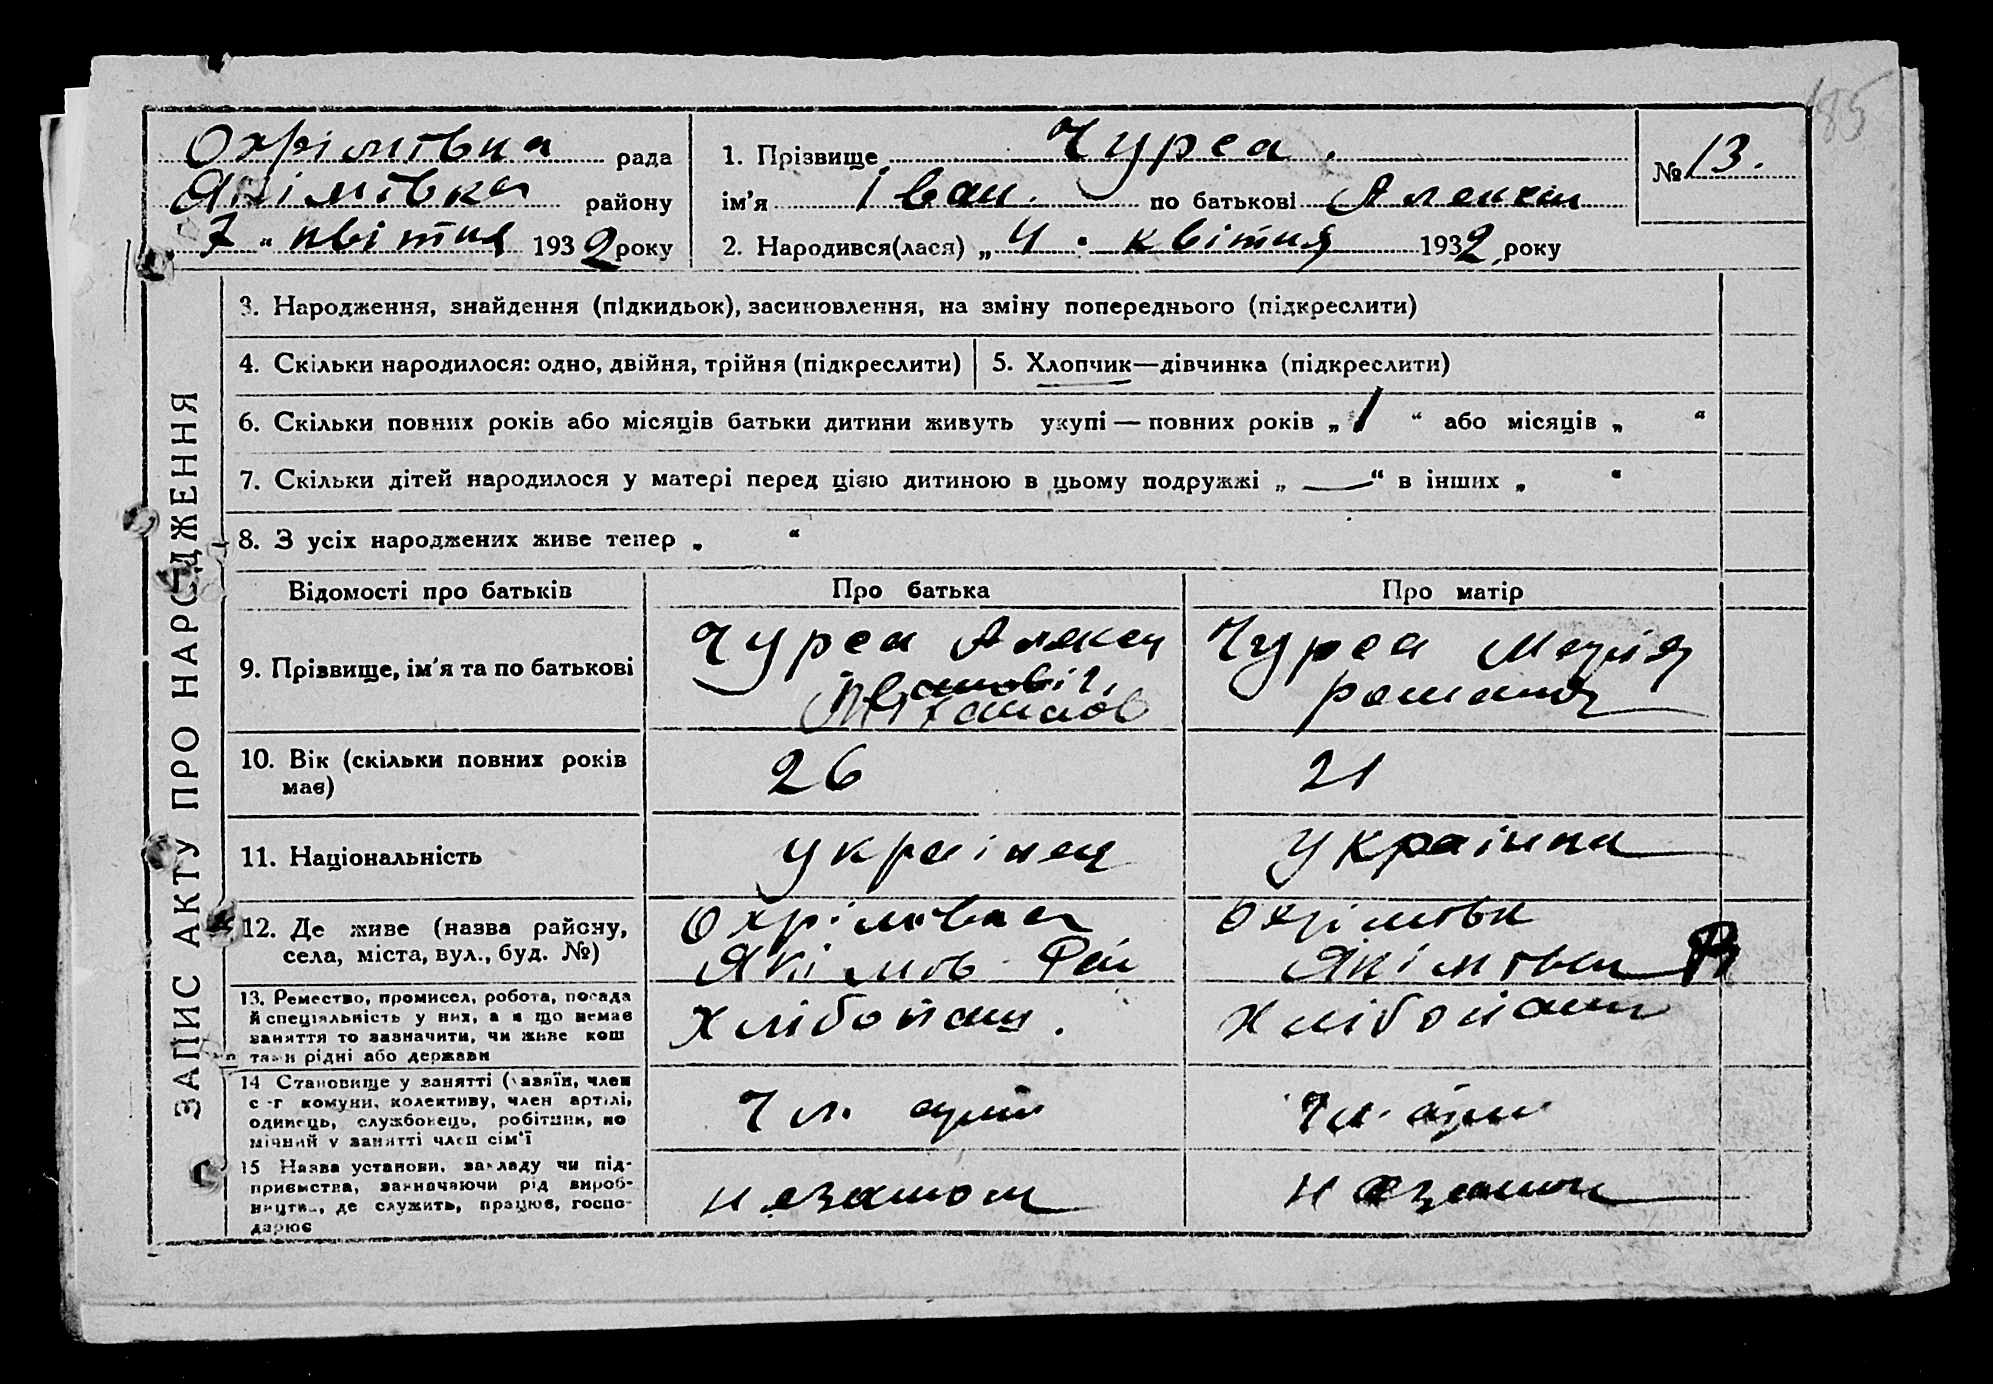 185
Охрімовка рада
Якімовка району
7 " квітня 1932 року
1. Прізвище Чурса.
ім'я Іван. по батькові Алексій
2. Народився(лася) „ 4 " квітня 1932 року
№ 13.
ЗАПИС АКТУ ПРО НАРОДЖЕННЯ
3. Народження, знайдення (підкидьок), засиновлення, на зміну попереднього (підкреслити)
4. Скільки народилося: одно, двійня, трійня (підкреслити)
5. Хлопчик—дівчинка (підкреслити)
6. Скільки повних років або місяців батьки дитини живуть укупі — повних років „ 1 “ або місяців „ “
7. Скільки дітей народилося у матері перед цією дитиною в цьому подружжі „ — “ в інших „ “
8. З усіх народжених живе тепер „ “
Відомості про батьків
Про батька
Про матір
9. Прізвище, ім'я та по батькові
Чурса Алексій
Чурса Марія
романов
10. Вік (скільки повних років
має)
26
21
11. Національність
українец
українка
12. Де живе (назва району,
села, міста, вул., буд. №)
Охрімовка
Якімов Рай
Охрімовк
Якімовка
13. Ремество, промисел, робота, посада
й спеціяльність у них, а як що немає
заняття то зазначити, чи живе кош
тами рідні або держави
Хлібопаш.
Хлібопаш
14 Становище у занятті (хазяїн, член
с-г комуни, колективу, член артілі,
одинець, службовець, робітник, по
мічний у занятті член сім'ї
Чл. арт
Чл. арт
15 Назва установи, закладу чи під-
приємства, зазначаючи рід вироб-
ництва, де служить, працює, госпо-
дарює
незамож
незамож